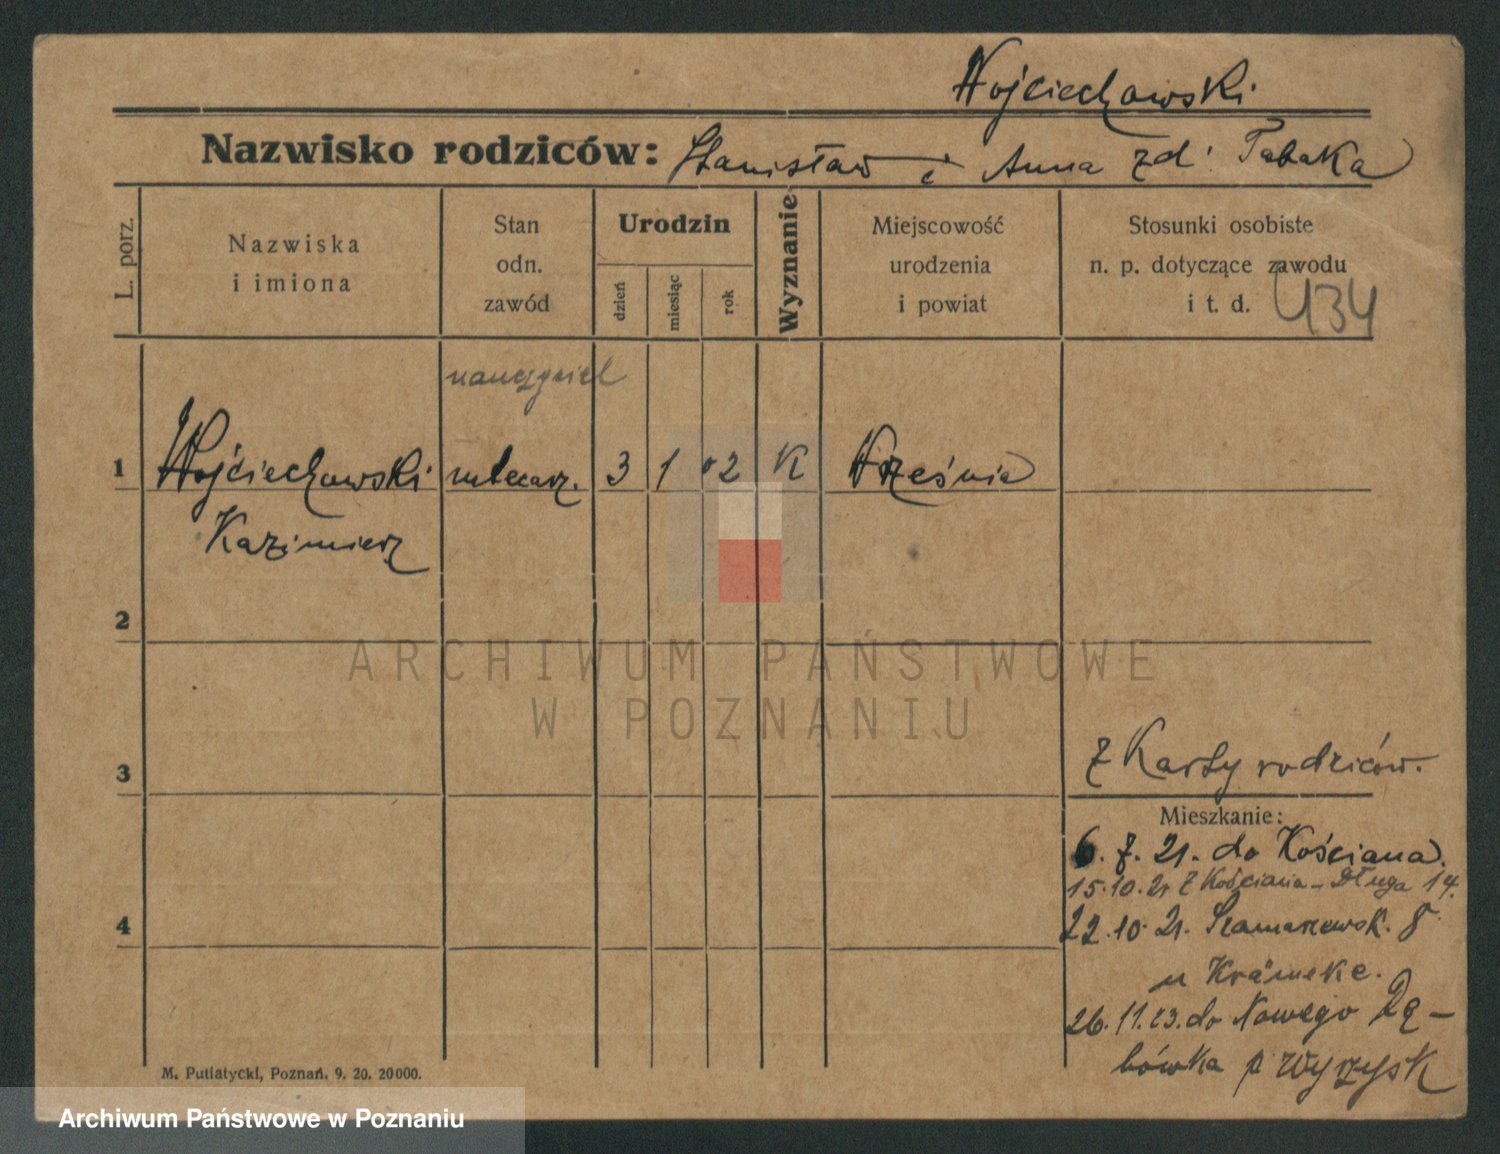 Wojciechowski
Nazwisko rodziców: Stanisław i Anna zd. Tabaka
L. porz.
Nazwiska
i imiona
Stan
odn.
zawód
Urodzin
dzień
miesiąc
rok
Wyznanie
Miejscowość
urodzenia
i powiat
Stosunki osobiste
n. p. dotyczące zawodu
i t. d.
434
nauczyciel
1 Wojciechowski mlecarz. 3 1 02 K Września
Kazimierz
2
ARCHIWUM PAŃSTWOWE
W POZNANIU
3
z Karty rodziców.
Mieszkanie:
6. 7. 21. do Kościana.
15.10.21 z Kościana - Długa 14.
4
22.10.21. Szamarzewsk. 8
u Krämeke.
26.11.23. do Nowego Dą-
bówka p Wyrzysk
M. Putiatycki, Poznań. 9. 20. 20000.
Archiwum Państwowe w Poznaniu